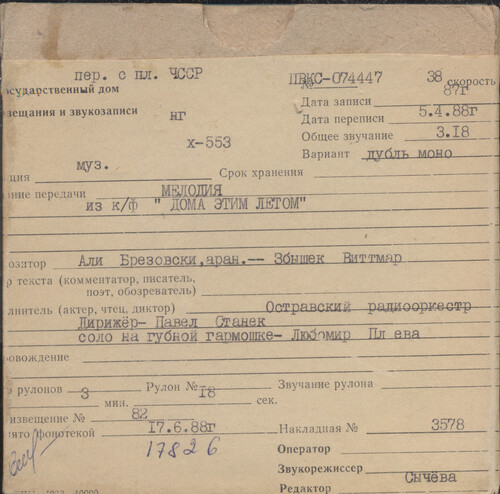 пер. с пл. ЧССР ПВКС-074447 38 скорость
осударственный дом № 87г
Дата записи
вещания и звукозаписи нг Дата переписи 5.4.88г
х-553 Общее звучание 3.18
муз. Вариант дубль моно
ция Срок хранения
ние передачи МЕЛОДИЯ
из к/ф " ДОМА ЭТИМ ЛЕТОМ"
озитор Али Брезовски,аран.-- Збышек Виттмар
р текста (комментатор, писатель,
поэт, обозреватель)
лнитель (актер, чтец, диктор) Остравский радиооркестр
Дирижёр- Павел Станек
соло на губной гармошке- Любомир Пл ева
ровождение
о рулонов 3 Рулон № 18 Звучание рулона
мин. сек.
извещение № 82
ято фонотекой 17.6.88г Накладная № 3578
17826 Оператор
Звукорежиссер
Редактор Сычёва